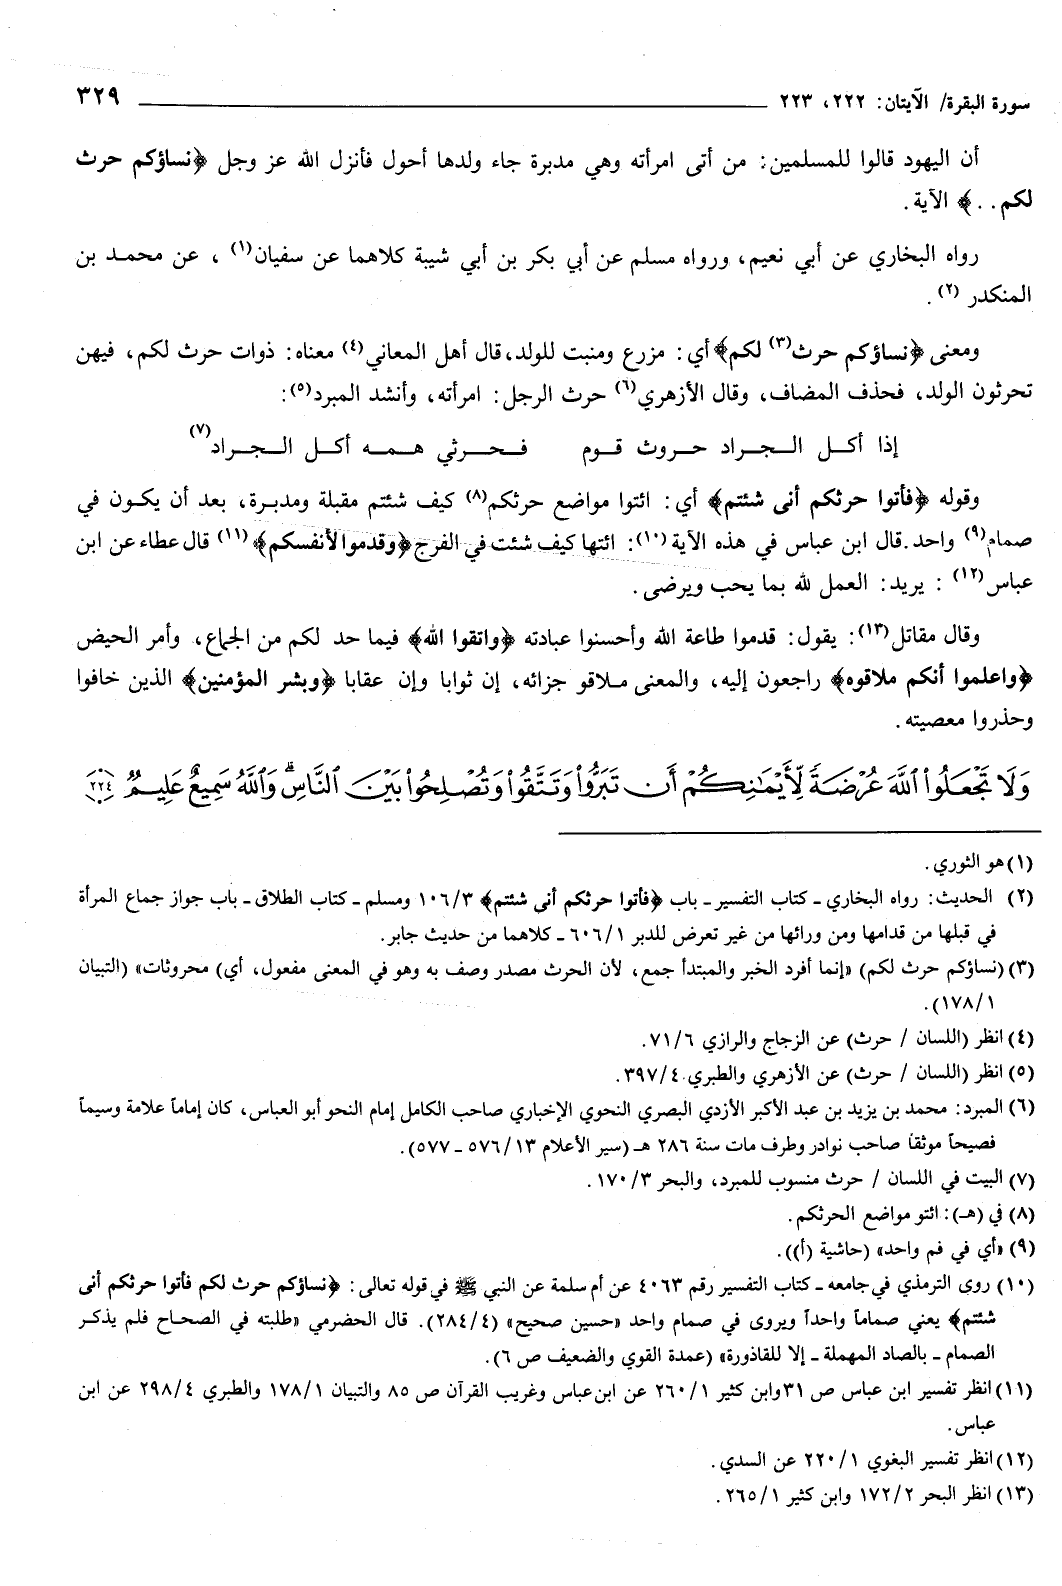 سورة البقرة/ الآيتان: ٢٢٢، ٢٢٣ ٣٢٩
أن اليهود قالوا للمسلمين: من أتى امرأته وهي مدبرة جاء ولدها أحول فأنزل الله عز وجل ﴿نساؤكم حرث
لكم..﴾ الآية.
رواه البخاري عن أبي نعيم، ورواه مسلم عن أبي بكر بن أبي شيبة كلاهما عن سفيان(١)، عن محمد بن
المنكدر (٢).
ومعنى ﴿نساؤكم حرث(٣) لكم﴾ أي: مزرع ومنبت للولد، قال أهل المعاني(٤) معناه: ذوات حرث لكم، فيهن
تحرثون الولد، فحذف المضاف، وقال الأزهري(٦) حرث الرجل: امرأته، وأنشد المبرد(٥):
إذا أكل الجراد حروث قوم فحرثي همه أكل الجراد(٧)
وقوله ﴿فأتوا حرثكم أنى شئتم﴾ أي: ائتوا مواضع حرثكم(٨) كيف شئتم مقبلة ومدبرة، بعد أن يكون في
صمام(٩) واحد. قال ابن عباس في هذه الآية (١٠): ائتها كيف شئت في الفرج ﴿وقدموا لأنفسكم﴾(١١) قال عطاء عن ابن
عباس(١٢) : يريد: العمل لله بما يحب ويرضى.
وقال مقاتل(١٣): يقول: قدموا طاعة الله وأحسنوا عبادته ﴿واتقوا الله﴾ فيما حد لكم من الجماع، وأمر الحيض
﴿واعلموا أنكم ملاقوه﴾ راجعون إليه، والمعنى ملاقو جزائه، إن ثوابا وإن عقابا ﴿وبشر المؤمنين﴾ الذين خافوا
وحذروا معصيته.
وَلَا تَجْعَلُوا۟ ٱللَّهَ عُرْضَةً لِّأَيْمَـٰنِكُمْ أَن تَبَرُّوا۟ وَتَتَّقُوا۟ وَتُصْلِحُوا۟ بَيْنَ ٱلنَّاسِ ۗ وَٱللَّهُ سَمِيعٌ عَلِيمٌ ٢٢٤
(١) هو الثوري.
(٢) الحديث: رواه البخاري ـ كتاب التفسير ـ باب ﴿فأتوا حرثكم أنى شئتم﴾ ١٠٦/٣ ومسلم ـ كتاب الطلاق ـ باب جواز جماع المرأة
في قبلها من قدامها ومن ورائها من غير تعرض للدبر ٦٠٦/١ ـ كلاهما من حديث جابر.
(٣) (نساؤكم حرث لكم) «إنما أفرد الخبر والمبتدأ جمع، لأن الحرث مصدر وصف به وهو في المعنى مفعول، أي) محروثات» (التبيان
١٧٨/١).
(٤) انظر (اللسان / حرث) عن الزجاج والرازي ٧١/٦.
(٥) انظر (اللسان / حرث) عن الأزهري والطبري ٣٩٧/٤.
(٦) المبرد: محمد بن يزيد بن عبد الأكبر الأزدي البصري النحوي الإخباري صاحب الكامل إمام النحو أبو العباس، كان إماماً علامة وسيماً
فصيحاً موثقاً صاحب نوادر وطرف مات سنة ٢٨٦ هـ (سير الأعلام ٥٧٦/١٣ ـ ٥٧٧).
(٧) البيت في اللسان / حرث منسوب للمبرد، والبحر ١٧٠/٣.
(٨) في (هـ): ائتو مواضع الحرثكم.
(٩) «أي في فم واحد» (حاشية (أ)).
(١٠) روى الترمذي في جامعه ـ كتاب التفسير رقم ٤٠٦٣ عن أم سلمة عن النبي ﷺ في قوله تعالى: ﴿نساؤكم حرث لكم فأتوا حرثكم أنى
شئتم﴾ يعني صماماً واحداً ويروى في صمام واحد «حسين صحيح» (٢٨٤/٤). قال الحضرمي «طلبته في الصحاح فلم يذكر
الصمام ـ بالصاد المهملة ـ إلا للقاذورة» (عمدة القوي والضعيف ص ٦).
(١١) انظر تفسير ابن عباس ص ٣١ وابن كثير ٢٦٠/١ عن ابن عباس وغريب القرآن ص ٨٥ والتبيان ١٧٨/١ والطبري ٢٩٨/٤ عن ابن
عباس.
(١٢) انظر تفسير البغوي ٢٢٠/١ عن السدي.
(١٣) انظر البحر ١٧٢/٢ وابن كثير ٢٦٥/١.